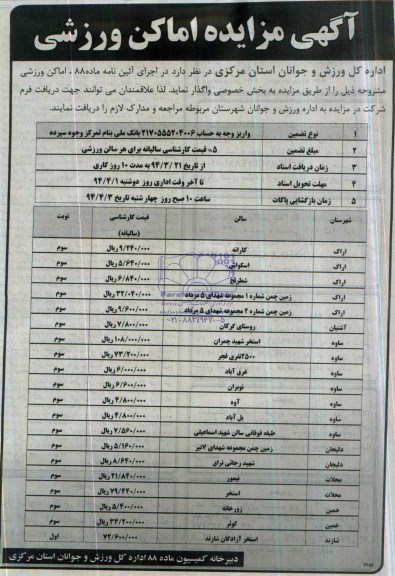 آگهی مزایده اماکن ورزشی
اداره کل ورزش و جوانان استان مرکزی در نظر دارد در اجرای آئین نامه ماده۸۸ ، اماکن ورزشی
مشروحه ذیل را از طریق مزایده به بخش خصوصی واگذار نماید. لذا علاقمندان می توانند جهت دریافت فرم
شرکت در مزایده به اداره ورزش و جوانان شهرستان مربوطه مراجعه و مدارک لازم را دریافت نمایند.
۱ نوع تضمین واریز وجه به حساب ۲۱۷۰۵۵۵۲۰۴۰۰۶ بانک ملی بنام تمرکز وجوه سپرده
۲ مبلغ تضمین ۵% قیمت کارشناسی سالیانه برای هر سالن ورزشی
۳ زمان دریافت اسناد از تاریخ ۹۴/۳/۲۱ به مدت ۱۰ روز کاری
۴ مهلت تحویل اسناد تا آخر وقت اداری روز دوشنبه ۹۴/۴/۱
۵ زمان بازگشایی پاکات ساعت ۱۰ صبح روز چهار شنبه تاریخ ۹۴/۴/۳
شهرستان سالن قیمت کارشناسی نوبت
(سالیانه)
اراک کاراته ۹/۲۴۰/۰۰۰ ریال سوم
اراک اسکواش ۵/۶۴۰/۰۰۰ ریال سوم
اراک شطرنج ۶/۸۴۰/۰۰۰ ریال سوم
اراک زمین چمن شماره ۱ مجموعه شهدای ۵ مرداد ۳۲/۰۴۰/۰۰۰ ریال سوم
اراک زمین چمن شماره ۲ مجموعه شهدای ۵ مرداد ۹/۶۰۰/۰۰۰ ریال سوم
آشتیان روستای گرکان ۷/۸۰۰/۰۰۰ ریال سوم
ساوه استخر شهید چمران ۱۰۸/۰۰۰/۰۰۰ ریال سوم
ساوه ۲۵۰۰نفری فجر ۷۳/۲۰۰/۰۰۰ ریال سوم
ساوه غرق آباد ۶/۰۰۰/۰۰۰ ریال سوم
ساوه نوبران ۶/۶۰۰/۰۰۰ ریال سوم
ساوه آوه ۴/۸۰۰/۰۰۰ ریال سوم
ساوه یل آباد ۴/۸۰۰/۰۰۰ ریال سوم
ساوه طبقه فوقانی سالن شهید اسماعیلی ۷/۵۶۰/۰۰۰ ریال سوم
دلیجان زمین چمن مجموعه شهدای ۷تیر ۵/۱۶۰/۰۰۰ ریال سوم
دلیجان شهید رجائی نراق ۸/۶۴۰/۰۰۰ ریال سوم
محلات نیمور ۲۱/۸۴۰/۰۰۰ ریال سوم
محلات استخر ۷۹/۴۴۰/۰۰۰ ریال سوم
خمین زورخانه ۵/۴۰۰/۰۰۰ ریال سوم
خمین کوثر ۳۴/۲۰۰/۰۰۰ ریال سوم
شازند استخر آزادگان شازند ۷۲/۶۰۰/۰۰۰ اول
دبیرخانه کمیسیون ماده ۸۸ اداره کل ورزش و جوانان استان مرکزی
۰۲۱-۸۸۳۴۹۶۷۰-۵